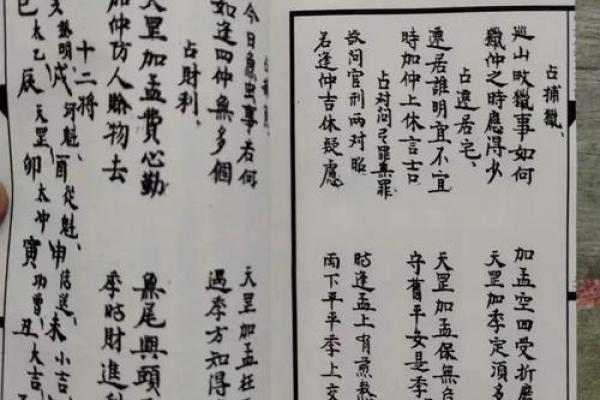 占捕獵、
巡山畋獵事如何 加孟空回受折磨
獵仲之時應得少 天罡加季定須多
占遷居宅、
遷居誰明宜不宜 天罡加孟保無危
時加仲上休言吉 守舊平安是季
占对問弓罪無罪
欲問官刑兩对昭 時逢孟上有煎熬
若逢仲吉休疑慮 雨下平平季上交
今日魚虫事若何 天罡加孟枉
如逢四仲無多個 遇季方知得
占財利、
天罡加孟費心勤 魚尾興頭
加仲仿人賒物去 季時財進利
十二将
登明、戌河魁、酉從魁、申傳送、未小吉、
巳太乙、辰天罡、卯太冲、寅功曹、丑大吉